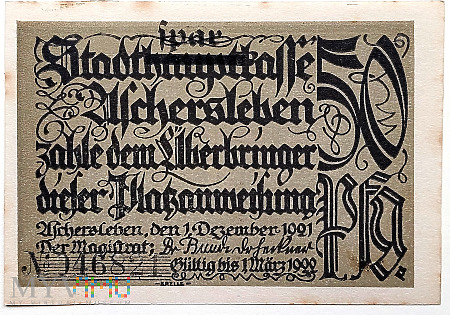 spar
Stadthauptkasse
Aschersleben
zahle dem Überbringer
dieser Platzanweisung
50
Pfg.
Aschersleben, den 1. Dezember 1921
Der Magistrat:
Gültig bis 1. März 1922
№ 146821